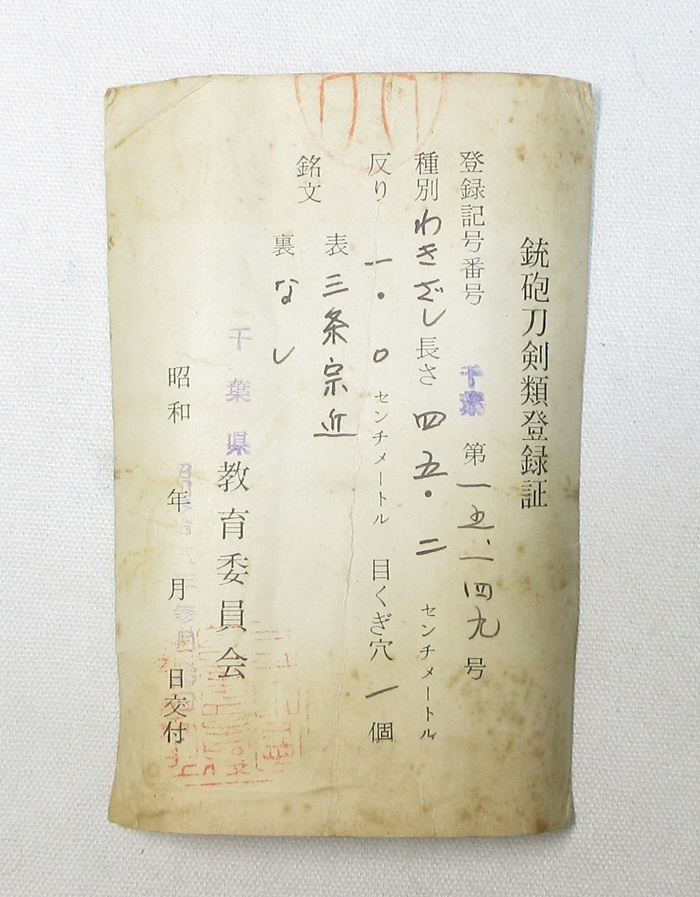 銃砲刀剣類登録証
登録記号番号 千葉 第一五、一四九号
種別 わきざし 長さ 四五・二 センチメートル
反り 一・〇 センチメートル 目くぎ穴 一 個
銘文 表 三条宗近
裏 なし
千葉県教育委員会
昭和 年 月 日交付